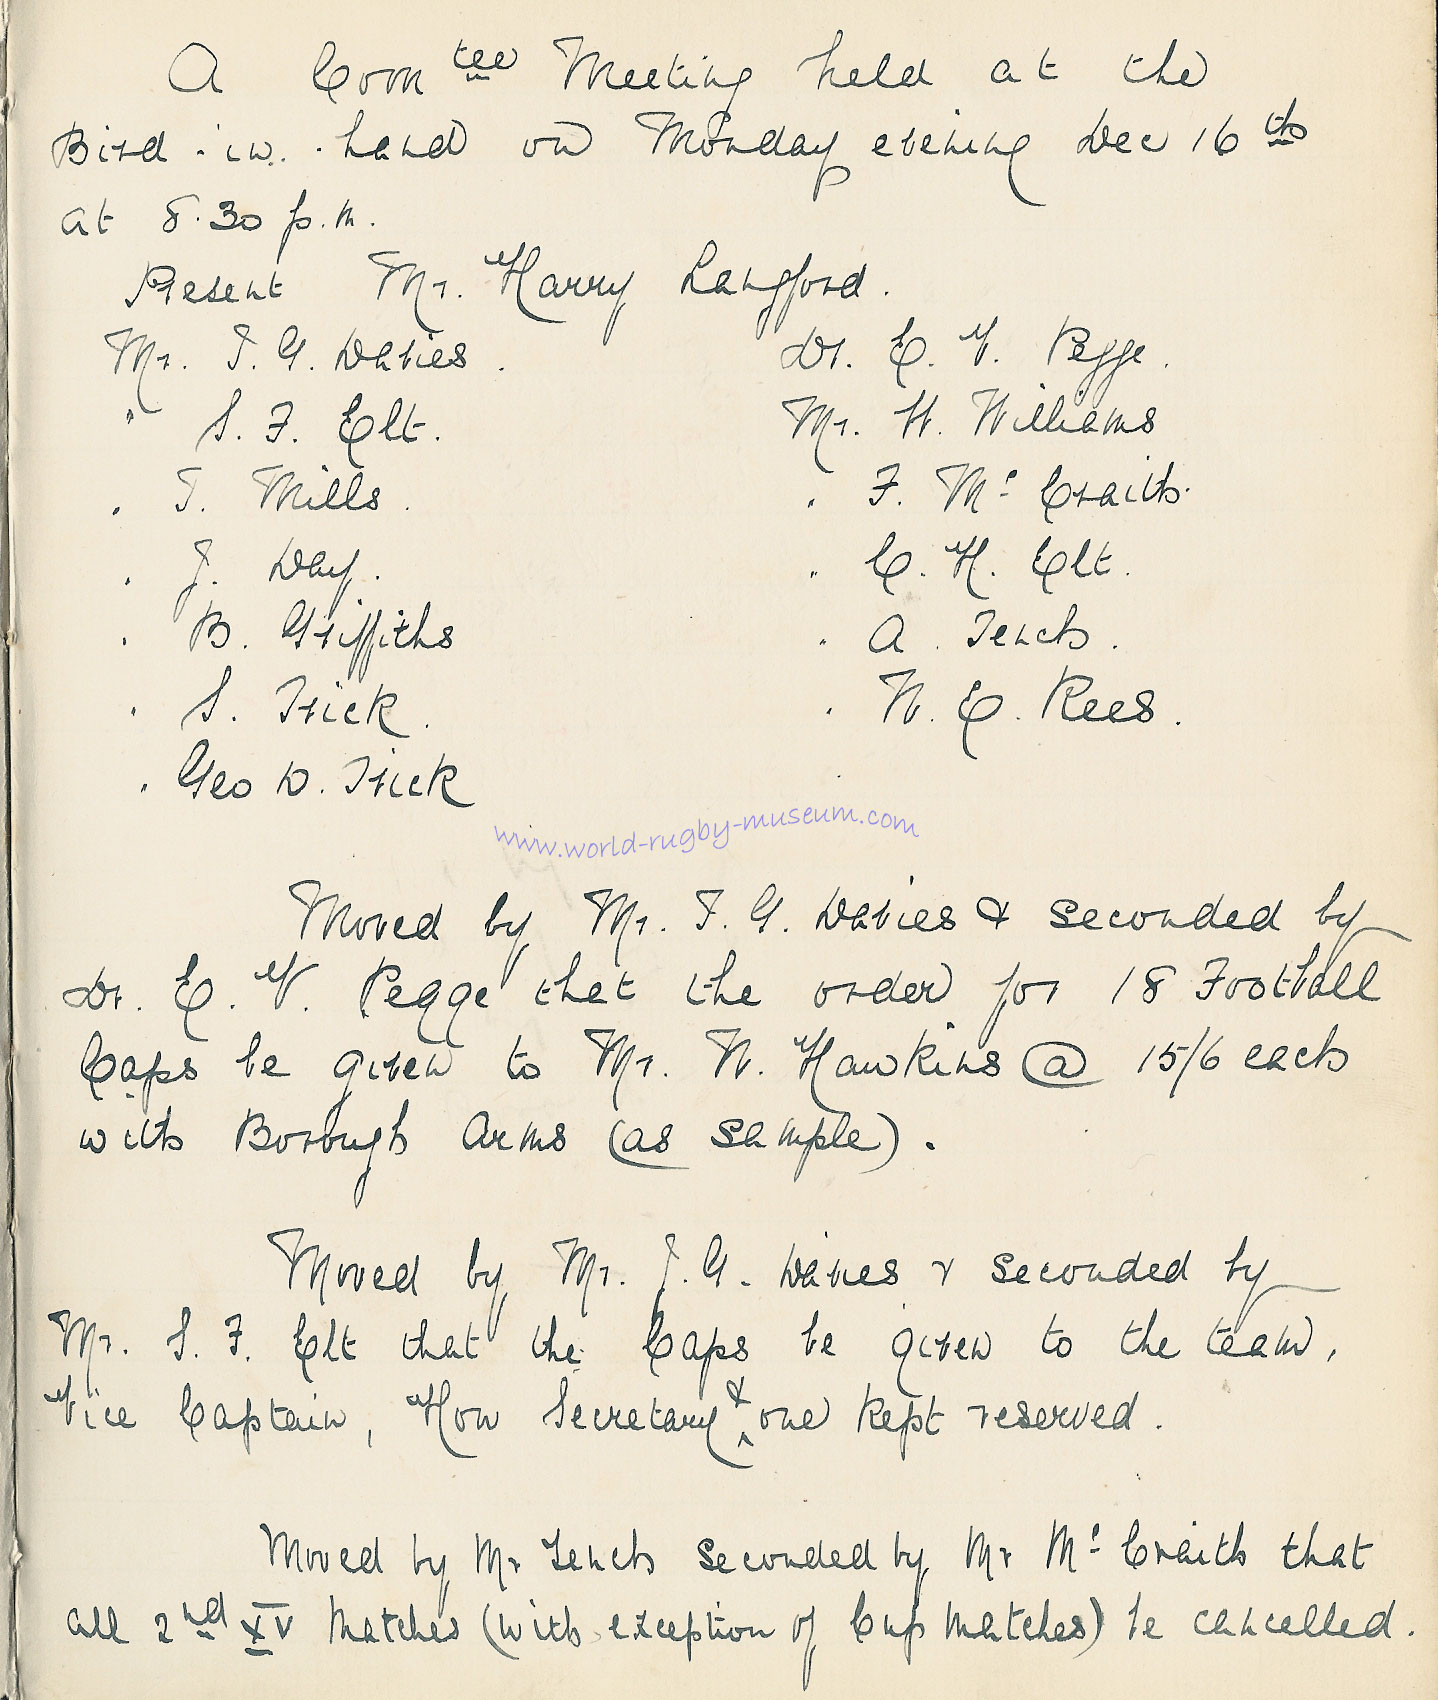 A Com tee Meeting held at the
Bird-in-hand on Monday evening Dec 16 th
at 8.30 p.m.
Present Mr. Harry Langford.
Mr. T. G. Davies. Dr. E. V. Pegge.
" S. F. Elt. Mr. W. Williams
" T. Mills. " F. Mc Craith.
" J. Day. " C. H. Elt.
" B. Griffiths " A. Tench.
" S. Trick. " W. E. Rees.
" Geo D. Trick
www.world-rugby-museum.com
Moved by Mr. T. G. Davies & seconded by
Dr. E. V. Pegge that the order for 18 Football
Caps be given to Mr. W. Hawkins @ 15/6 each
with Borough Arms (as sample).
Moved by Mr. T. G. Davies & seconded by
Mr. S. F. Elt that the Caps be given to the team,
Vice Captain, Hon Secretary & one kept reserved.
Moved by Mr Tench seconded by Mr Mc Craith that
all 2nd XV Matches (with exception of Cup Matches) be cancelled.